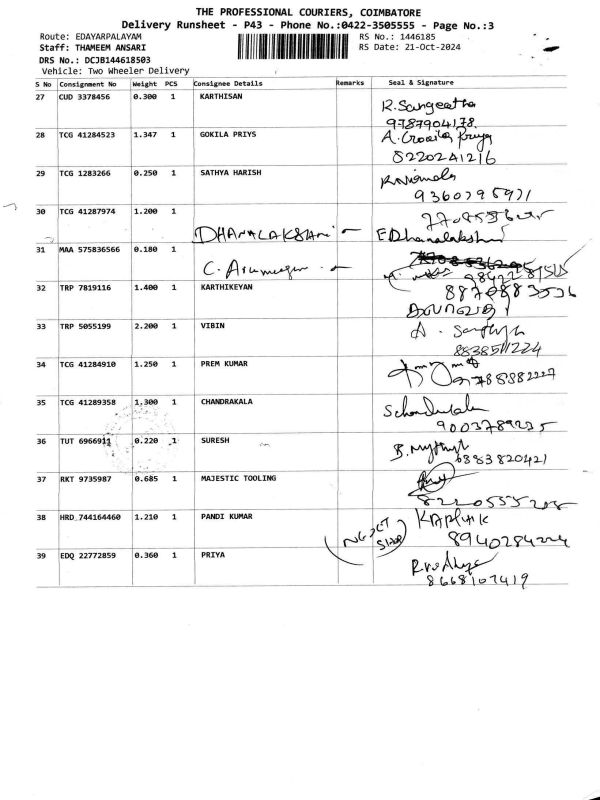 THE PROFESSIONAL COURIERS, COIMBATORE
Delivery Runsheet - P43 - Phone No.:0422-3505555 - Page No.:3
Route: EDAYARPALAYAM RS No.: 1446185
Staff: THAMEEM ANSARI RS Date: 21-Oct-2024
DRS No.: DCJB144618503
Vehicle: Two Wheeler Delivery
S No Consignment No Weight PCS Consignee Details Remarks Seal & Signature
27 CUD 3378456 0.300 1 KARTHISAN R. Sangeetha
9787904178
28 TCG 41284523 1.347 1 GOKILA PRIYS A. Gokila Priya
8220241216
29 TCG 1283266 0.250 1 SATHYA HARISH
9360795971
30 TCG 41287974 1.200 1
DHANALAKSHMI E Dhanalakshmi
31 MAA 575836566 0.180 1
C. Arumugam
32 TRP 7819116 1.400 1 KARTHIKEYAN 8870883536
33 TRP 5055199 2.200 1 VIBIN
8838511224
34 TCG 41284910 1.250 1 PREM KUMAR
9788882227
35 TCG 41289358 1.300 1 CHANDRAKALA S chandrakala
9003789235
36 TUT 6966911 0.220 1 SURESH
6883820421
37 RKT 9735987 0.685 1 MAJESTIC TOOLING
38 HRD_744164460 1.210 1 PANDI KUMAR KARTHIK
8940284224
39 EDQ 22772859 0.360 1 PRIYA
8668107419